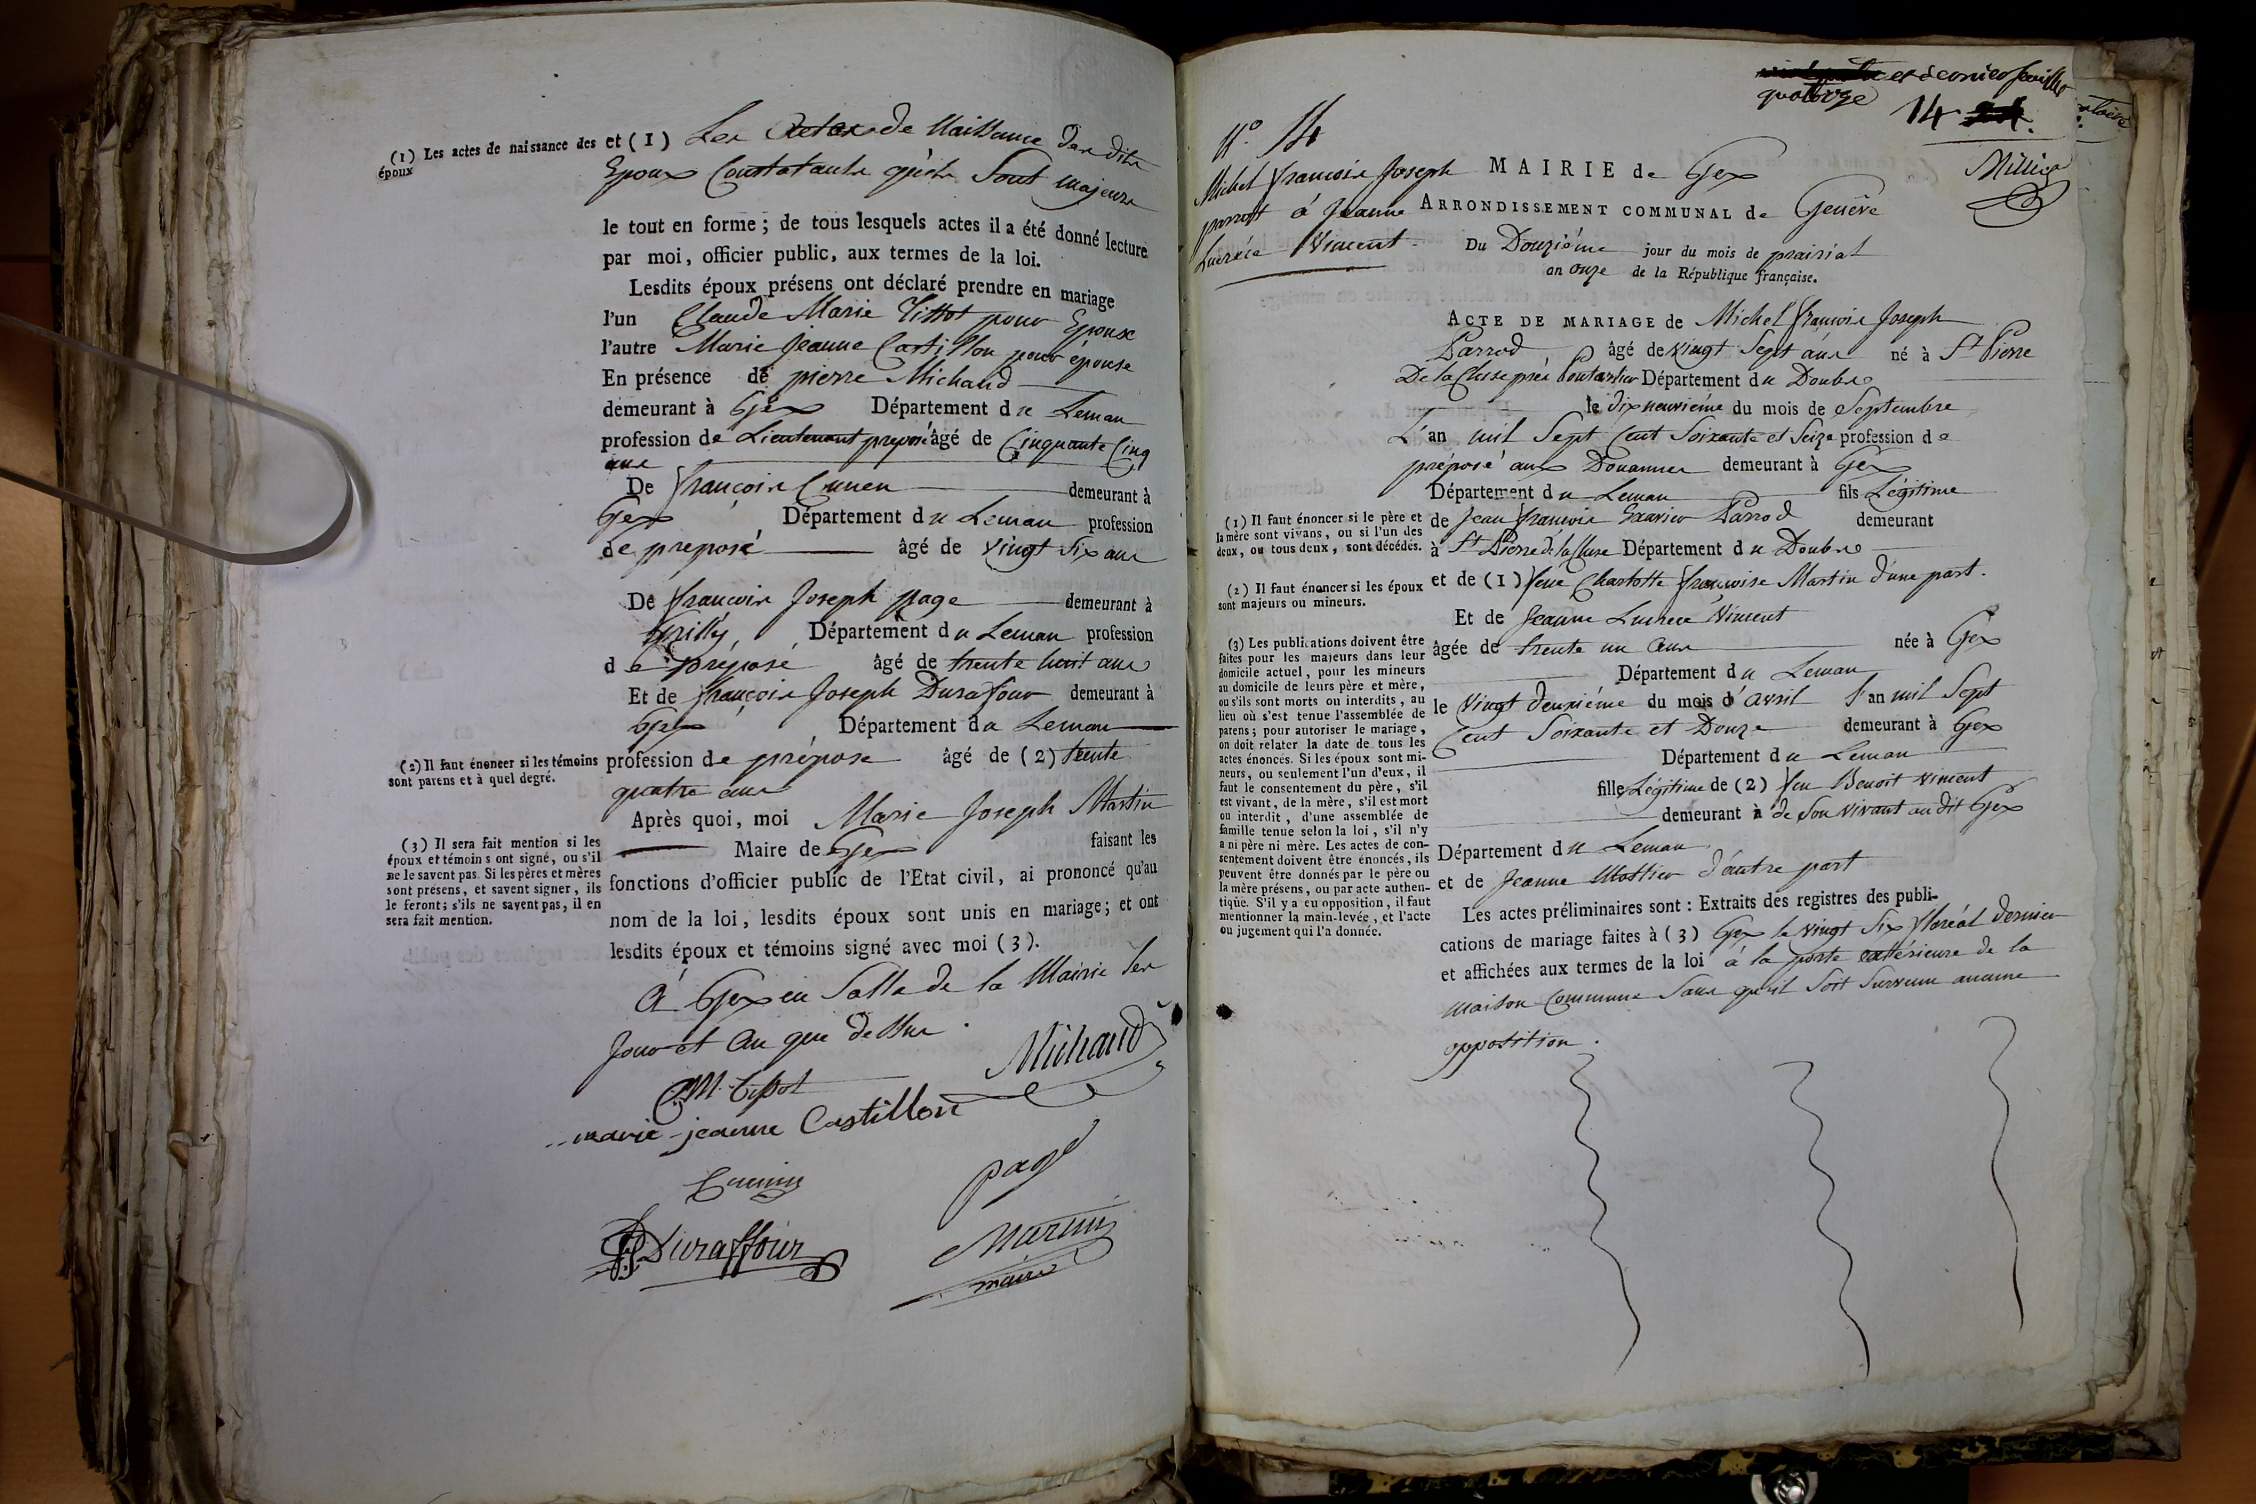 (1) Les actes de naissance des
époux
et (1) Les Actes de Naissance des dits
Epoux Constatants qu'ils Sont majeurs
le tout en forme ; de tous lesquels actes il a été donné lecture
par moi, officier public, aux termes de la loi.
Lesdits époux présens ont déclaré prendre en mariage
l'un Claude Marie Tissot pour Epoux
l'autre Marie Jeanne Castillon pour épouse
En présence de pierre Michaud
demeurant à Gex Département du Leman
profession de Lieutenant preposé âgé de Cinquante Cinq
ans
De françois Cunen demeurant à
Gex Département du Leman profession
de preposé âgé de vingt Six ans
De françois Joseph page demeurant à
Grilly Département du Leman profession
de préposé âgé de trente huit ans
Et de françois Joseph Durafour demeurant à
Gex Département du Leman
(2) Il faut énoncer si les témoins
sont parens et à quel degré.
profession de préposé âgé de (2) trente
quatre ans
Après quoi, moi Marie Joseph Martin
Maire de Gex faisant les
(3) Il sera fait mention si les
époux et témoins ont signé, ou s'il
ne le savent pas. Si les pères et mères
sont présens, et savent signer, ils
le feront; s'ils ne savent pas, il en
sera fait mention.
fonctions d'officier public de l'Etat civil, ai prononcé qu'au
nom de la loi, lesdits époux sont unis en mariage; et ont
lesdits époux et témoins signé avec moi (3).
À Gex en Salle de la Mairie Les
Jour et An que dessus.
Michaud
C.M. tissot
marie-jeanne Castillon
page
Duraffour
Martin
maire
et dernier feuillet
quatorze
14
N.º 14
Michel françois Joseph
parrod à Jeanne
Lucrèce Vincent.
MAIRIE de Gex
ARRONDISSEMENT COMMUNAL de Genève
Du Douzième jour du mois de prairial
an onze de la République française.
ACTE DE MARIAGE de Michel françois Joseph
Parrod âgé de vingt Sept ans né à St Pierre
De la Cluse près Pontarlier Département du Doubs
le dix neuvième du mois de Septembre
L'an mil Sept Cent Soixante et Seize profession de
préposé aux Douannes demeurant à Gex
Département du Leman fils Légitime
(1) Il faut énoncer si le père et
la mère sont vivans, ou si l'un des
deux, ou tous deux, sont décédés.
de Jean françois Exavier Parrod demeurant
à St Pierre de la Cluse Département du Doubs
et de (1) feue Charlotte françoise Martin d'une part.
(2) Il faut énoncer si les époux
sont majeurs ou mineurs.
Et de Jeanne Lucrece Vincent
âgée de trente un ans née à Gex
Département du Leman
le Vingt deuxième du mois d'avril l'an mil Sept
Cent Soixante et Douze demeurant à Gex
Département du Leman
fille Légitime de (2) feu Benoit vincent
demeurant à de Son vivant au dit Gex
Département du Leman
et de Jeanne Mottier d'autre part
(3) Les publications doivent être
faites pour les majeurs dans leur
domicile actuel, pour les mineurs
au domicile de leurs père et mère,
ou s'ils sont morts ou interdits, au
lieu où s'est tenue l'assemblée de
parens; pour autoriser le mariage,
on doit relater la date de tous les
actes énoncés. Si les époux sont mi-
neurs, ou seulement l'un d'eux, il
faut le consentement du père, s'il
est vivant, de la mère, s'il est mort
ou interdit, d'une assemblée de
famille tenue selon la loi, s'il n'y
a ni père ni mère. Les actes de con-
sentement doivent être énoncés, ils
peuvent être donnés par le père ou
la mère présens, ou par acte authen-
tique. S'il y a eu opposition, il faut
mentionner la main-levée, et l'acte
ou jugement qui l'a donnée.
Les actes préliminaires sont : Extraits des registres des publi-
cations de mariage faites à (3) Gex le vingt Six floréal dernier
et affichées aux termes de la loi à la porte extérieure de la
maison Commune Sans qu'il Soit Survenu aucune
opposition.